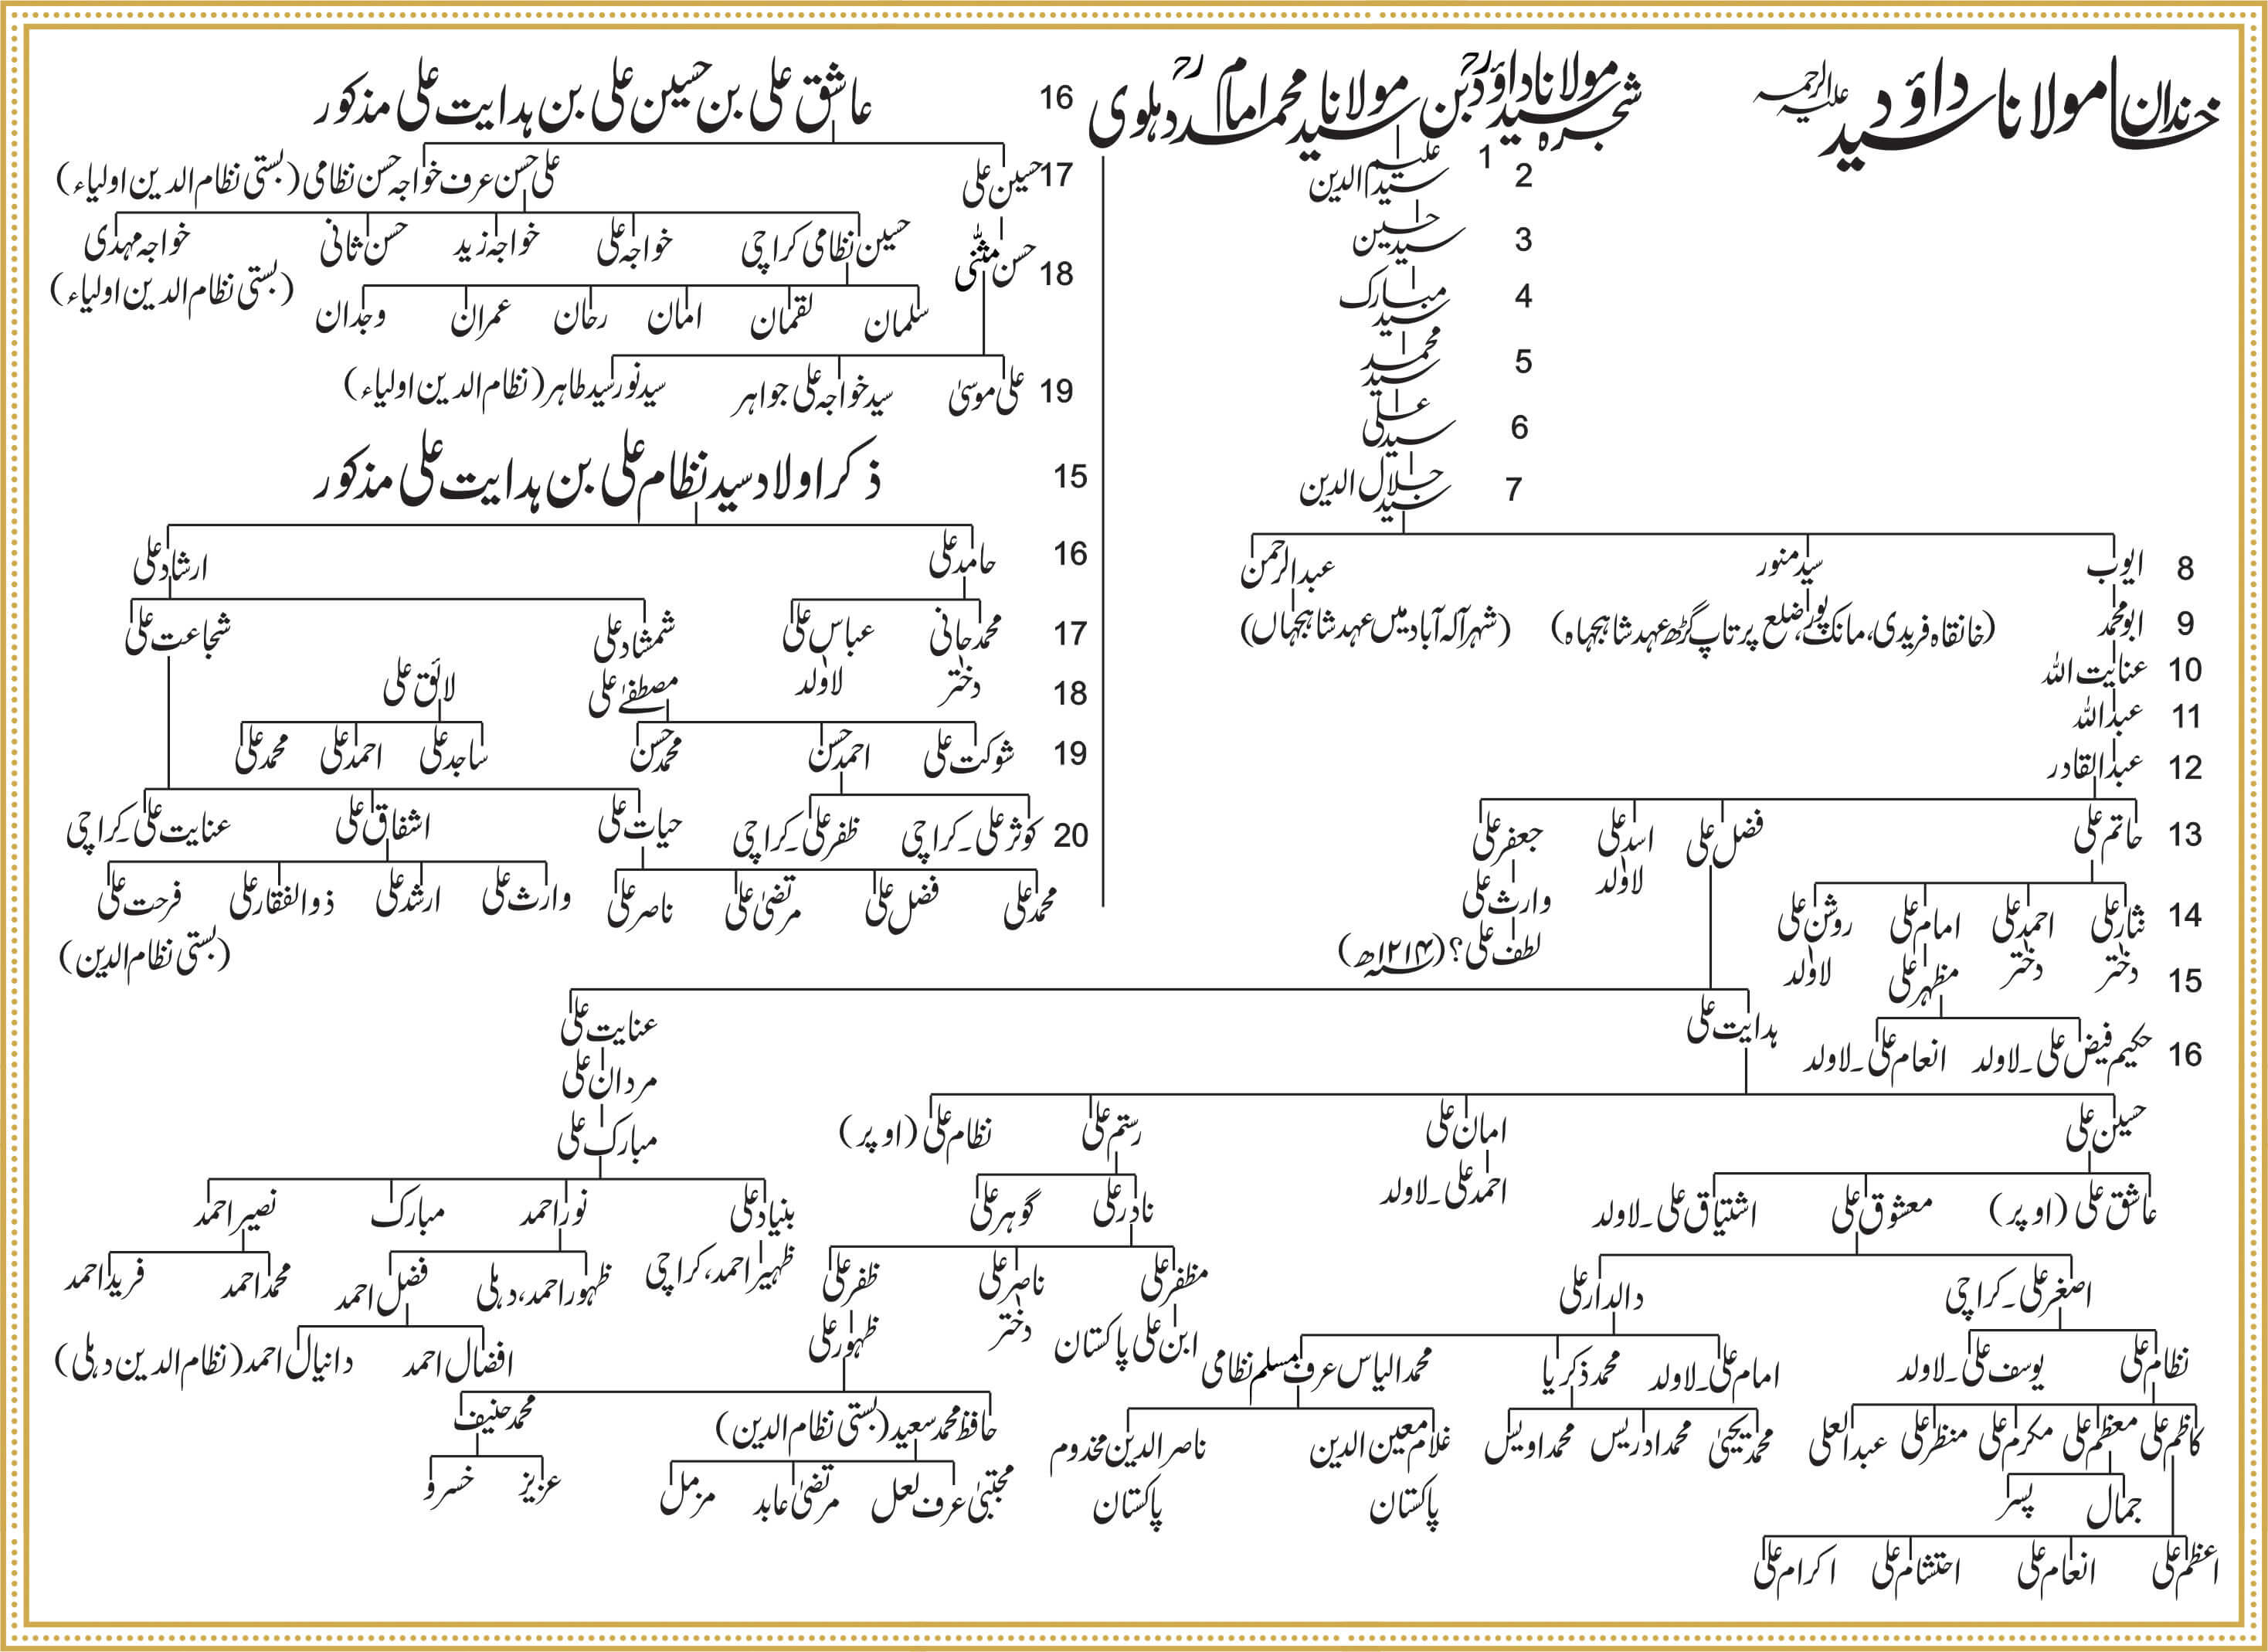 خاندان مولانا سید داؤد علیہ الرحمہ
شجرہ مولانا سید داؤدؒ بن مولانا سید محمد امامؒ دہلوی
1
2 سید علیم الدین
3 سید حسین
4 سید مبارک
5 سید محمد
6 سید علی
7 سید جلال الدین
8 ایوب سید منور عبدالرحمن
9 ابو محمد (خانقاہ فریدی، مانک پور، ضلع پرتاپ گڑھ عہد شاہجہاہ) (شہر آلہ آباد میں عہد شاہجہاں)
10 عنایت اللہ
11 عبداللہ
12 عبدالقادر
13 حاتم علی فضل علی اسد علی جعفر علی
لاولد وارث علی
14 نثار علی احمد علی امام علی روشن علی
لطف علی؟ (۱۲۱۴ھ)
15 دختر دختر مظہر علی لاولد
16 حکیم فیض علی۔لاولد انعام علی۔لاولد
ہدایت علی عنایت علی
مردان علی
مبارک علی
حسین علی امان علی رستم علی نظام علی (اوپر)
احمد علی۔لاولد
عاشق علی (اوپر) معشوق علی اشتیاق علی۔لاولد
نادر علی گوہر علی
بنیاد علی نور احمد مبارک نصیر احمد
اصغر علی۔کراچی دالدار علی
مظفر علی ناصر علی ظفر علی
ابن علی پاکستان دختر ظہور علی
ظہیر احمد، کراچی ظہور احمد، دہلی فضل احمد محمد احمد فرید احمد
افضال احمد دانیال احمد (نظام الدین دہلی)
نظام علی یوسف علی۔لاولد
امام علی۔لاولد محمد ذکریا محمد الیاس عرف مسلم نظامی
حافظ محمد سعید (بستی نظام الدین) محمد حنیف
کاظم علی معظم علی مکرم علی منظر علی عبدالعلی
محمد یحییٰ محمد ادریس محمد اویس
غلام معین الدین ناصر الدین مخدوم
پاکستان پاکستان
مجتبیٰ عرف لعل مرتضیٰ عابد مزمل
عزیز خسرو
جمال پسر
اعظم علی انعام علی احتشام علی اکرام علی
16 عاشق علی بن حسین علی بن ہدایت علی مذکور
17 حسین علی علی حسن عرف خواجہ حسن نظامی (بستی نظام الدین اولیاء)
18 حسن مثنّٰی حسین نظامی کراچی خواجہ علی خواجہ زید حسن ثانی خواجہ مہدی
(بستی نظام الدین اولیاء)
سلمان لقمان امان رحان عمران وجدان
19 علی موسیٰ سید خواجہ علی جواہر سید نور سید طاہر (نظام الدین اولیاء)
15 ذکر اولاد سید نظام علی بن ہدایت علی مذکور
16 حامد علی ارشاد علی
17 محمد جانی عباس علی شمشاد علی شجاعت علی
18 دختر لاولد مصطفےٰ علی لائق علی
19 شوکت علی احمد حسن محمد حسن ساجد علی احمد علی محمد علی
20 کوثر علی۔کراچی ظفر علی۔کراچی حیات علی اشفاق علی عنایت علی۔کراچی
محمد علی فضل علی مرتضیٰ علی ناصر علی وارث علی ارشد علی ذوالفقار علی فرحت علی
(بستی نظام الدین)